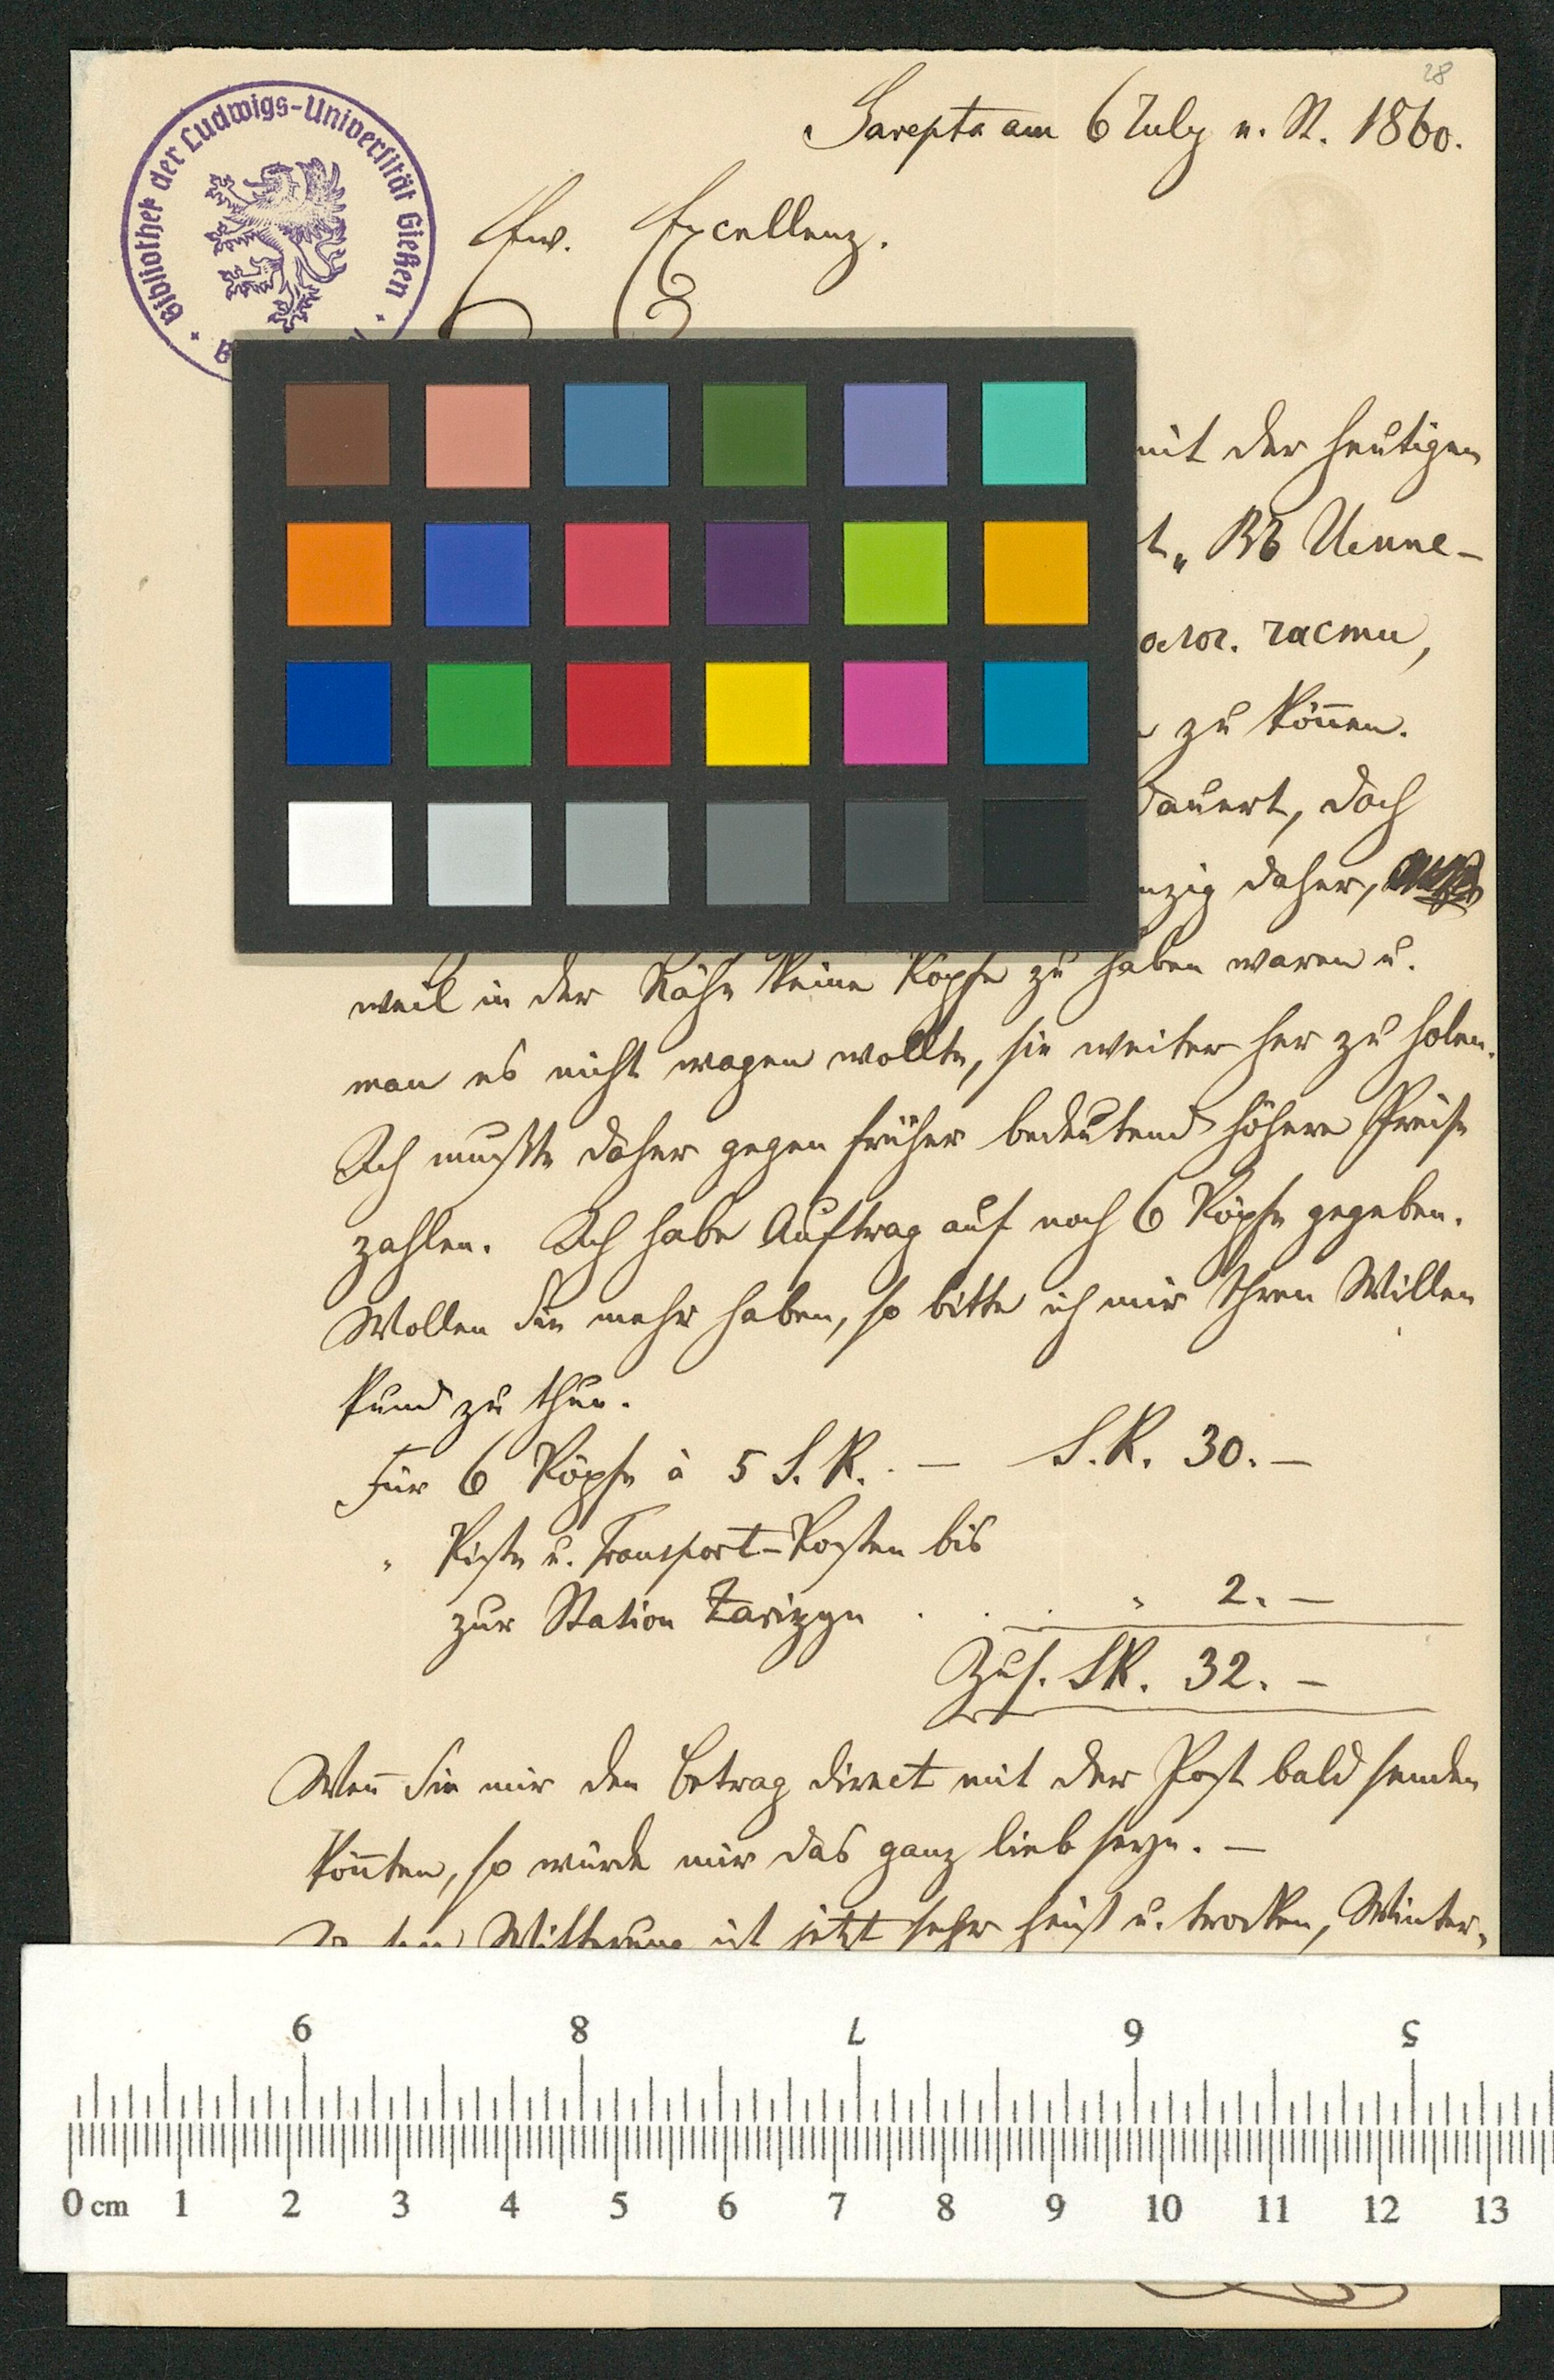 28
Sarepta am 6 July n. St. 1860.
Bibliothek der Ludwigs-Universität Gießen
Ew. Excellenz.
mit der heutigen
t „ Въ Импе-
олог. части,
zu kön̄en.
dauert, doch
daher,
weil in der Nähe keine Köpfe zu haben waren u.
man es nicht wagen wollte, sie weiter her zu holen.
Ich mußte daher gegen früher bedeutend höhere Preise
zahlen. Ich habe Auftrag auf noch 6 Köpfe gegeben.
Wollen Sie mehr haben, so bitte ich mir Ihren Willen
kund zu thun.
Für 6 Köpfe à 5 S. R. . — S. R. 30. —
„ Kiste u. Transport-Kosten bis
zur Station Zarizyn . . . „ 2. —
Zus. SR. 32. —
Wen̄ Sie mir den Betrag direct mit der Post bald senden
kön̄ten, so würde mir das ganz lieb seyn. —
Witterung ist jetzt sehr heiß u. trocken, Winter-
9 8 7 6 5
0 cm 1 2 3 4 5 6 7 8 9 10 11 12 13